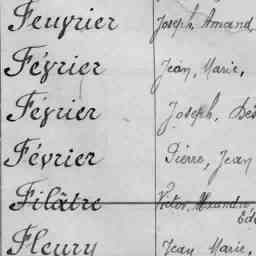 Feuvrier Joseph, Amand
Février Jean, Marie,
Février Joseph, Dés
Février Pierre, Jean
Filâtre Victor, Alexandre,
Fleury Jean Marie,